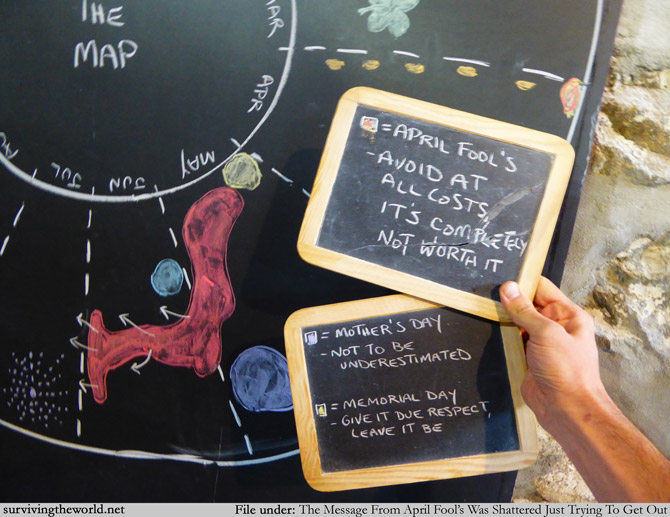 THE
MAP
MAR
APR
MAY
JUN
JUL
= APRIL FOOL'S
- AVOID AT
ALL COSTS,
IT'S COMPLETELY
NOT WORTH IT
= MOTHER'S DAY
- NOT TO BE
UNDERESTIMATED
= MEMORIAL DAY
- GIVE IT DUE RESPECT,
LEAVE IT BE
survivingtheworld.net
File under: The Message From April Fool's Was Shattered Just Trying To Get Out